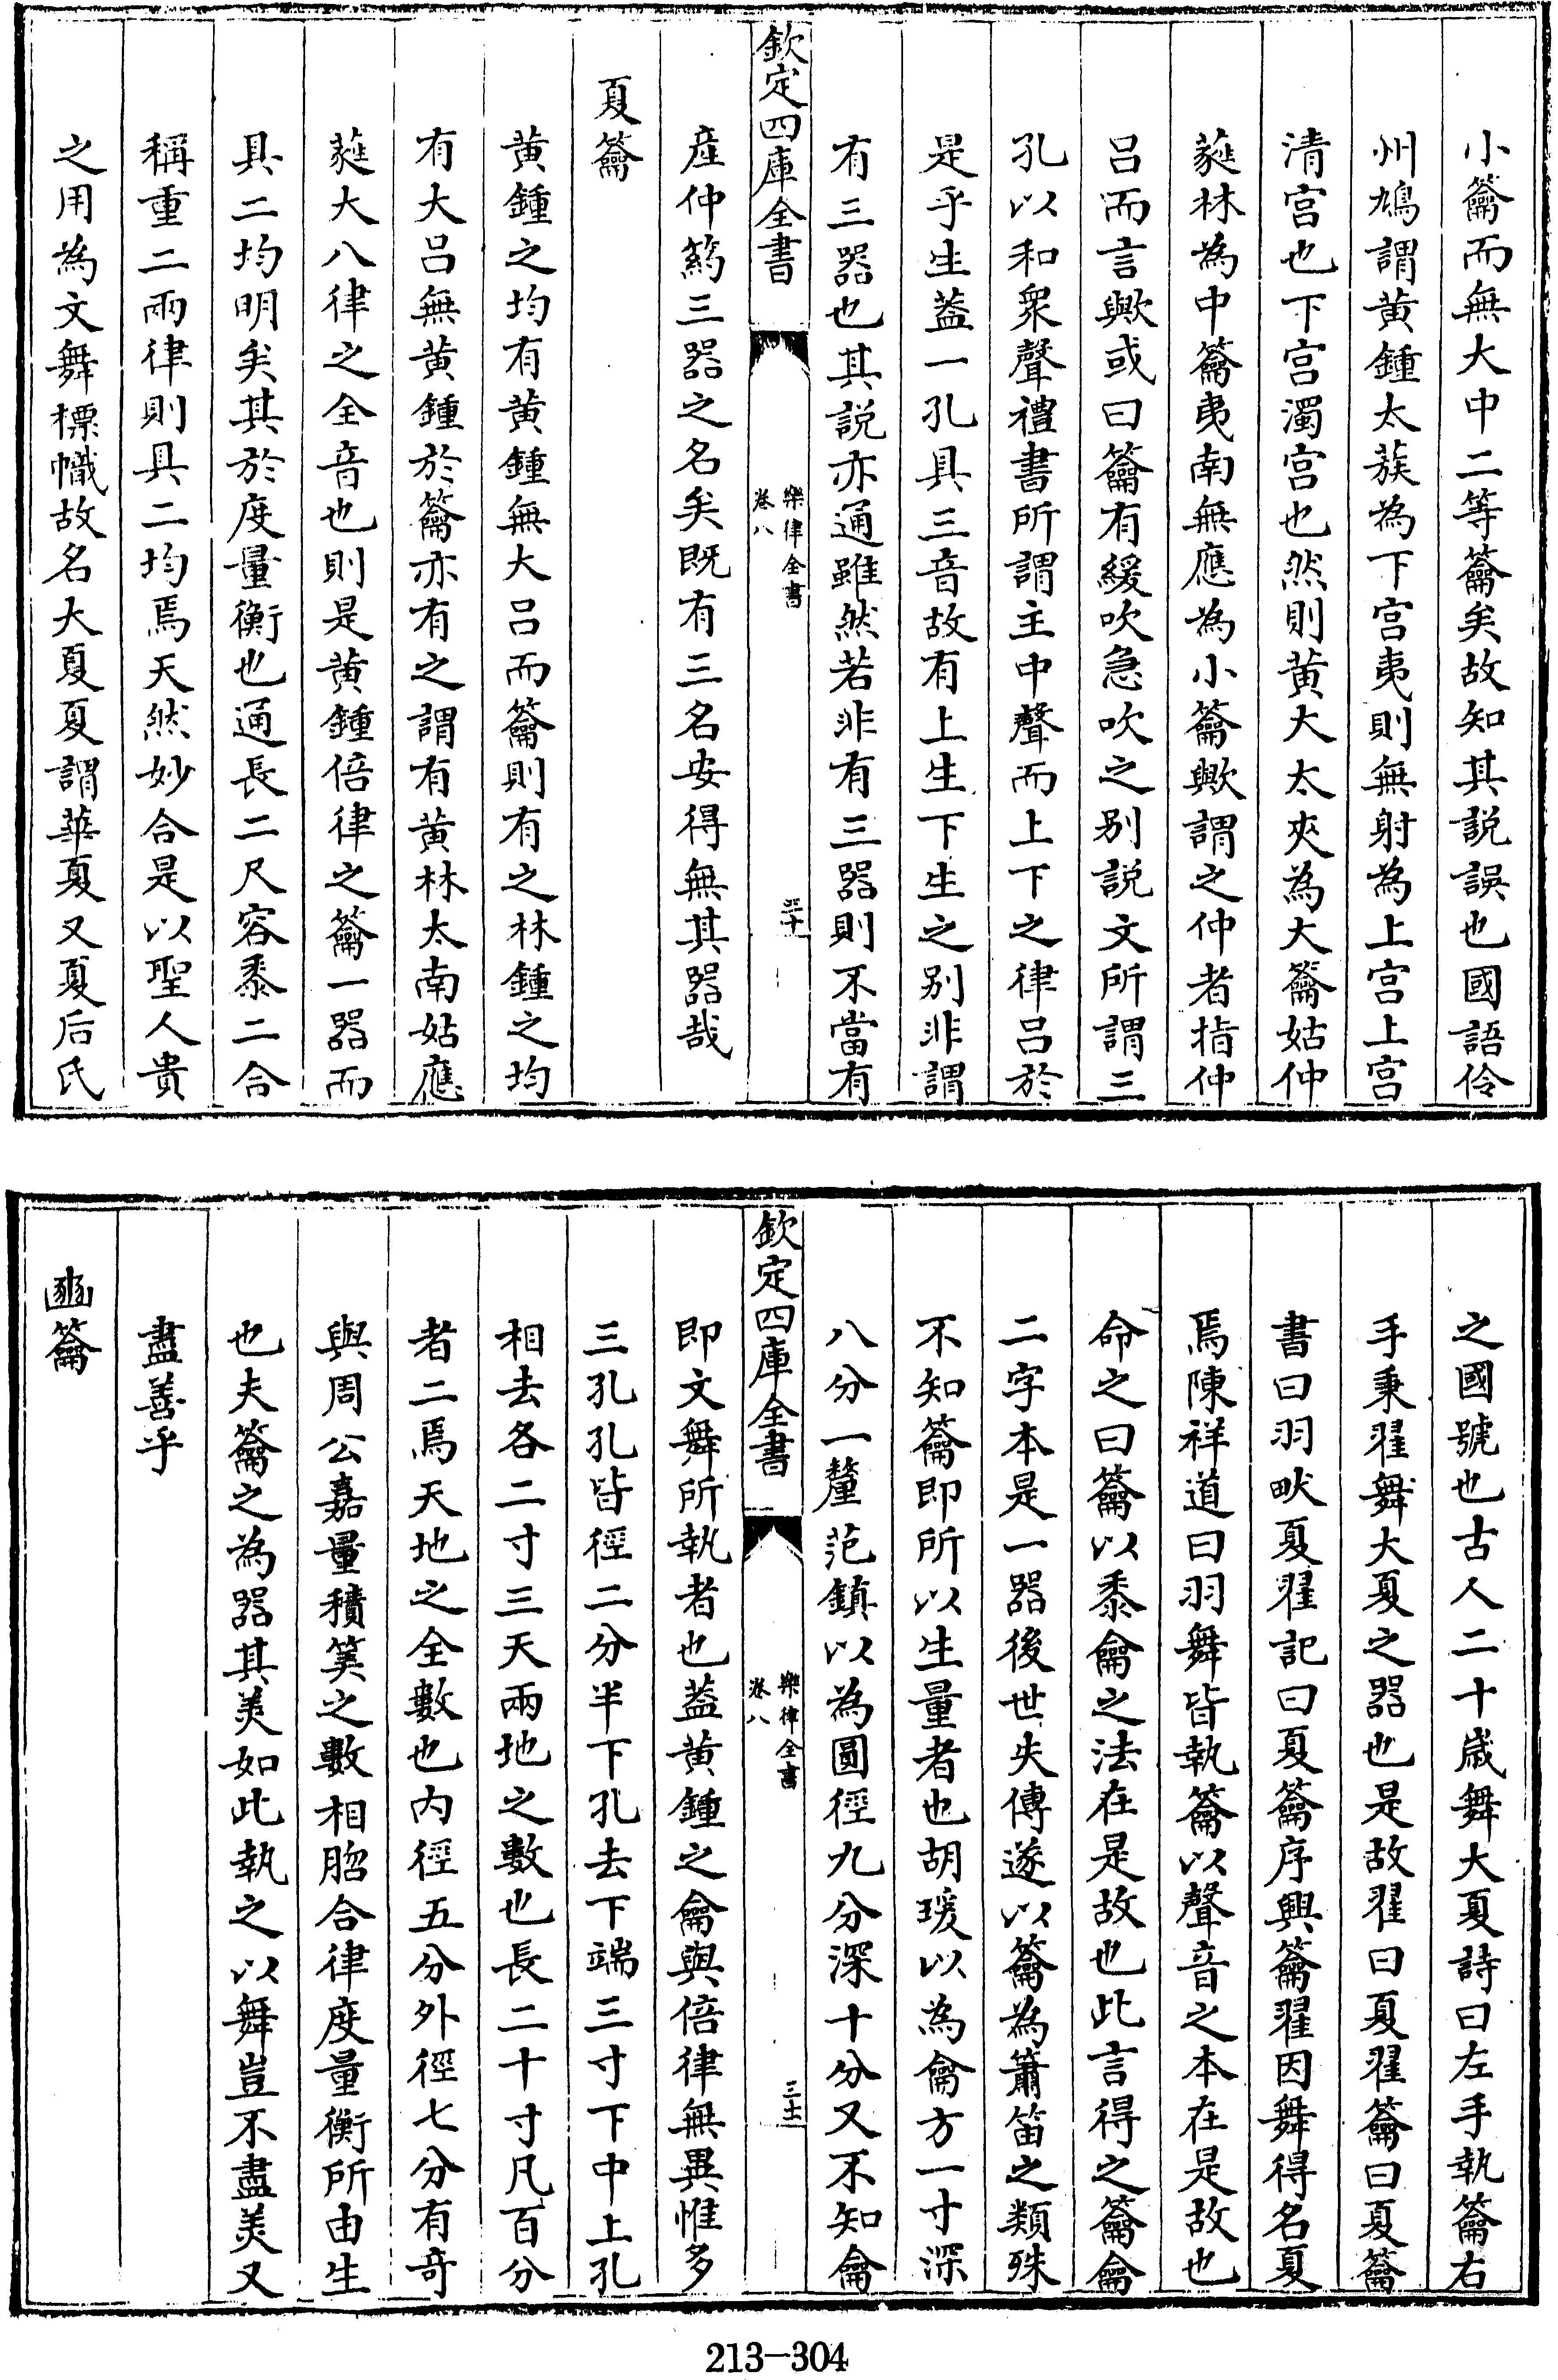 小籥而無大中二等籥矣故知其説誤也國語伶
州鳩謂黄鍾太蔟為下宫夷則無射為上宫上宫
清宫也下宫濁宫也然則黄大太夾為大籥姑仲
蕤林為中籥夷南無應為小籥歟謂之仲者指仲
吕而言歟或曰籥有緩吹急吹之别説文所謂三
孔以和衆聲禮書所謂主中聲而上下之律吕於
是乎生蓋一孔具三音故有上生下生之别非謂
有三器也其説亦通雖然若非有三器則不當有
欽定四庫全書
樂律全書
卷八
三十
産仲箹三器之名矣既有三名安得無其器哉
夏籥
黄鍾之均有黄鍾無大吕而籥則有之林鍾之均
有大吕無黄鍾於籥亦有之謂有黄林太南姑應
蕤大八律之全音也則是黄鍾倍律之籥一器而
具二均明矣其於度量衡也通長二尺容黍二合
稱重二兩律則具二均焉天然妙合是以聖人貴
之用為文舞標幟故名大夏夏謂華夏又夏后氏
之國號也古人二十歲舞大夏詩曰左手執籥右
手秉翟舞大夏之器也是故翟曰夏翟籥曰夏籥
書曰羽畎夏翟記曰夏籥序興籥翟因舞得名夏
焉陳祥道曰羽舞皆執籥以聲音之本在是故也
命之曰籥以黍龠之法在是故也此言得之籥龠
二字本是一器後世失傳遂以籥為簫笛之類殊
不知籥即所以生量者也胡瑗以為龠方一寸深
八分一釐范鎮以為圓徑九分深十分又不知龠
欽定四庫全書
樂律全書
卷八
三十一
即文舞所執者也蓋黄鍾之龠與倍律無異惟多
三孔孔皆徑二分半下孔去下端三寸下中上孔
相去各二寸三天兩地之數也長二十寸凡百分
者二焉天地之全數也内徑五分外徑七分有奇
與周公嘉量積筭之數相脗合律度量衡所由生
也夫籥之為器其美如此執之以舞豈不盡美又
盡善乎
豳籥
213-304